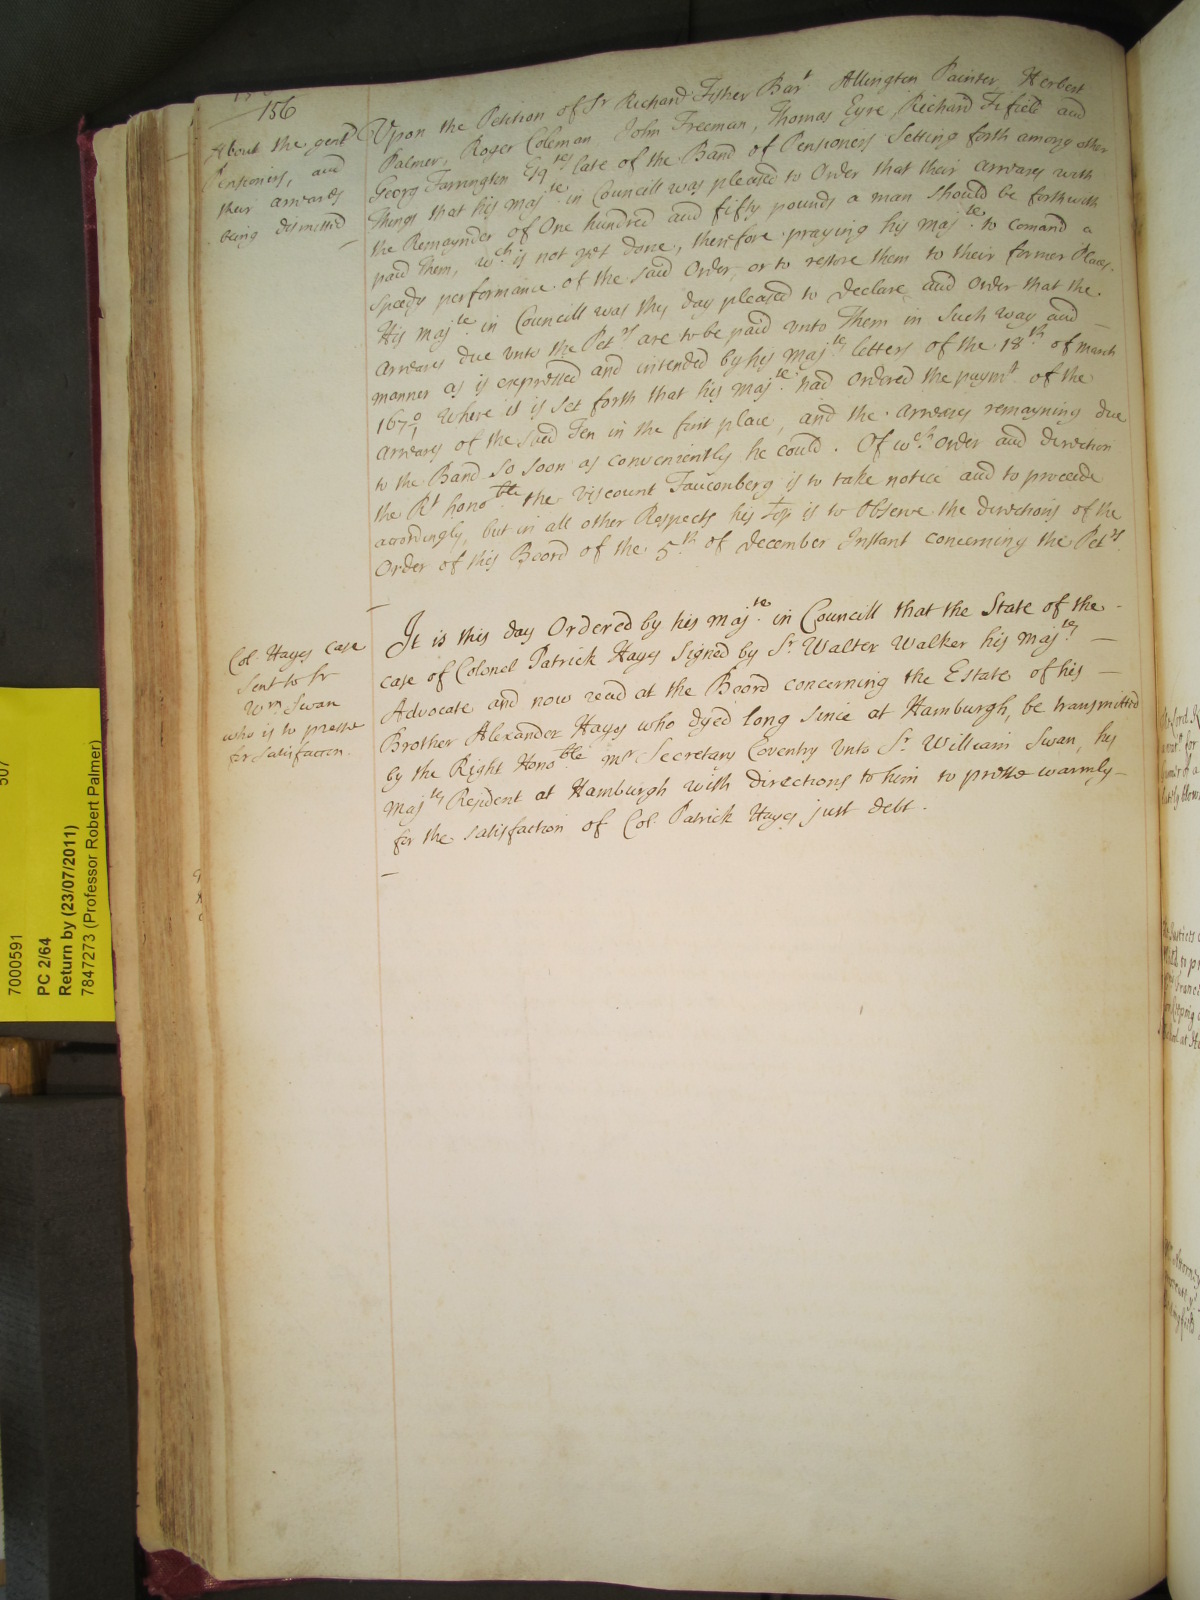 156
About the gent
Pensioners, and
their arreares
being dismissed
Upon the Petition of Sr Richard Fisher Bart Allington Painter Herbert
Palmer, Roger Coleman John Freeman, Thomas Eyre Richard Fifield and
Georg Farrington Esqres late of the Band of Pensioners Setting forth among other
Things that his Majte in Councill was pleased to Order that their arreares with
the Remaynder of One hundred and fifty pounds a man should be forthwith
paid Them, wch is not yet done, therefore praying his Majte to comand a
speedy performance of the said Order, or to restore them to their former Places.
His Majte in Councill was this day pleased to declare and order that the
arreares due unto the Petrs are to be paid unto Them in Such way and
manner as is expressed and intended by his Majtes letters of the 18th of march
1670/1 Where it is set forth that his Majte had ordered the paymt of the
arreares of the said Ten in the first place, and the arreares remayning due
to the Band so soon as conveniently he could. Of wch order and direction
the Rt honoble the Viscount Fauconberg is to take notice and to proceede
accordingly, but in all other Respects his Lop is to Observe the directions of the
Order of this Board of the 5th of december Instant concerning the Petrs
Col. Hayes case
Sent to Sr
Wm Swan
who is to presse
for satisfaccon.
It is this day Ordered by his Majte in Councill that the State of the
case of Colonel Patrick Hayes Signed by Sr Walter Walker his Majtes
Advocate and now read at the Board concerning the Estate of his
Brother Alexander Hayes who dyed long since at Hamburgh, be transmitted
by the Right Honoble Mr Secretary Coventry unto Sr William Swan, his
Majtes Resident at Hamburgh with directions to him to presse warmly
for the satisfaction of Col. Patrick Hayes just debt.
7000591
PC 2/64
Return by (23/07/2011)
7847273 (Professor Robert Palmer)
507